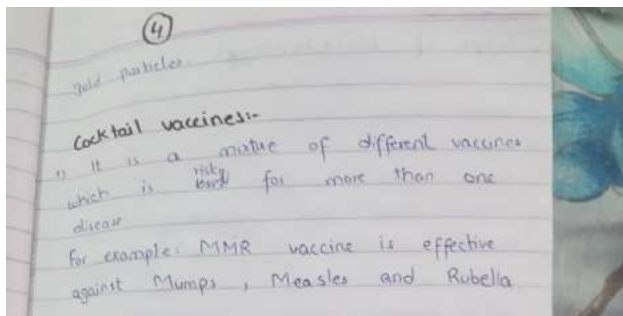 4
gold particles.
Cocktail vaccines:-
It is a mixtue of different vaccines
which is for more than one
disease
for example: MMR vaccine is effective
against Mumps, Measles and Rubella